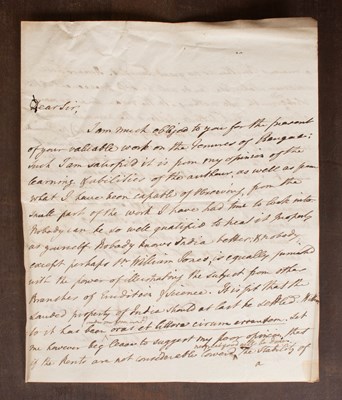 Dear Sir,
I am much obliged to you for the present
of your valuable work on the Tenures of Bengal:
such I am satisfied it is from my opinion of the
learning & abilities of the author, as well as from
what I have been capable of observing, from the
small part of the work I have had time to look into
Nobody can be so well qualified to treat it properly
as yourself. Nobody knows India better, & nobody,
except perhaps Sr William Jones, is equally furnished
with the power of illustrating the subject from other
Branches of Erudition & Science. It is fit that the
Landed property of India should at last be settled.
so it has been orae et littora circum Let
me however beg leave to support my poor opinion that
if the Rents are not considerable toward the Stability of
a